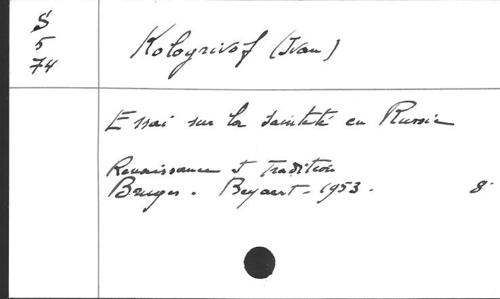 S
5
74
Kologrivof (Ivan)
Essai sur la Sainteté en Russie
Renaissance et Tradition
Bruges. Beyaert - 1953. 8°